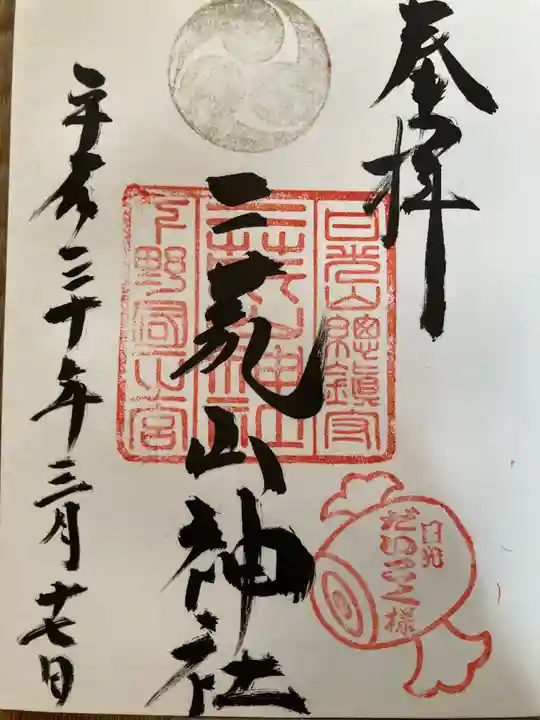 奉拝
二荒山神社
日光山總鎮守
二荒山神社
下野國一之宮
日光
だいこく様
平成三十年三月十七日